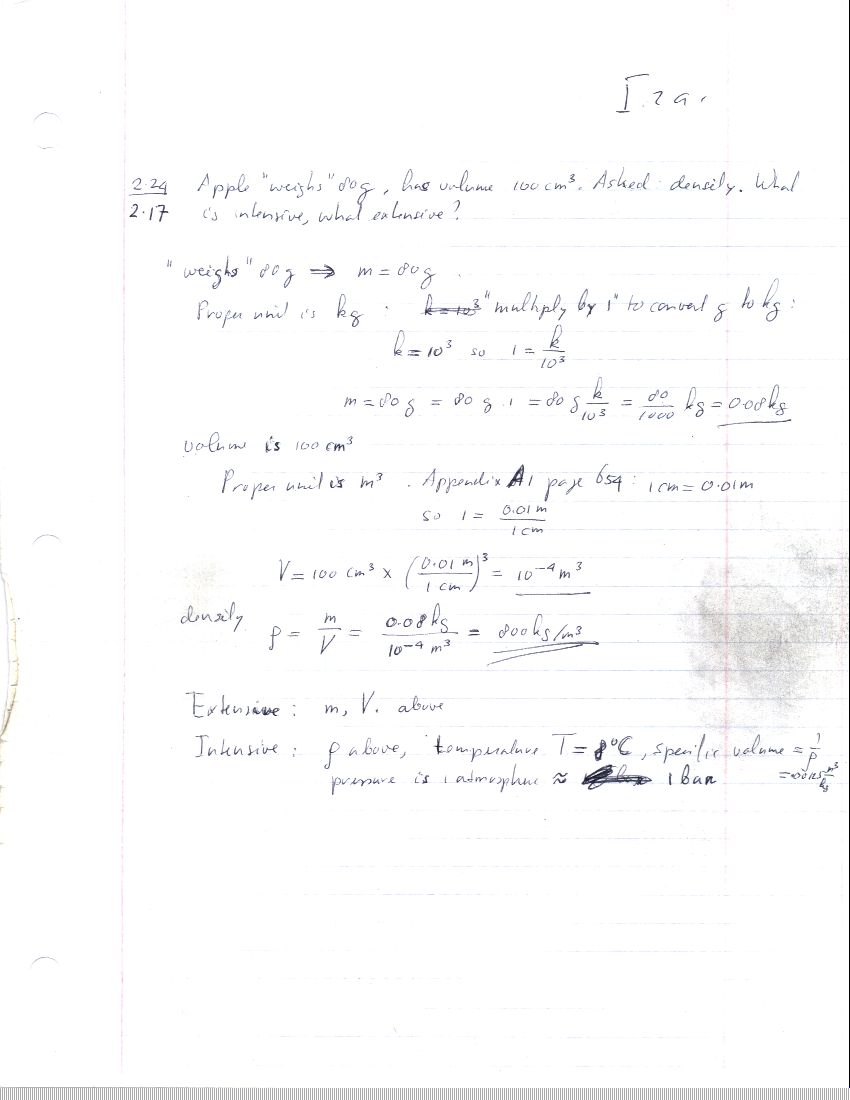 I.2a.
2.24 Apple "weighs" 80g, has volume 100 cm³. Asked: density. What
2.17 is intensive, what extensive?
"weighs" 80g ⇒ m = 80g.
Proper unit is kg : k = 10³ "multiply by 1" to convert g to kg:
k = 10³ so 1 = k/10³
m = 80g = 80 g . 1 = 80 g k/10³ = 80/1000 kg = 0.08kg
volume is 100 cm³
Proper unit is m³. Appendix A1 page 654: 1cm = 0.01m
so 1 = 0.01 m/1 cm
V = 100 cm³ × (0.01 m/1 cm)³ = 10⁻⁴ m³
density
ρ = m/V = 0.08kg/10⁻⁴ m³ = 800 kg/m³
Extensive: m, V. above
Intensive: ρ above, temperature T = 8°C, specific volume = 1/ρ
pressure is 1 atmosphere ≈ 1 bar